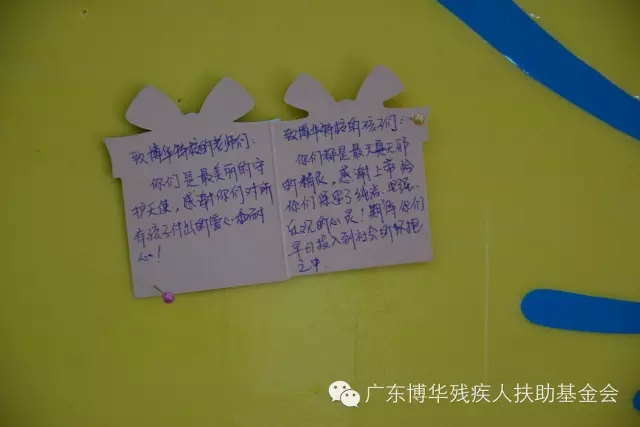 致博华特校的老师们：
你们是最美丽的守
护天使，感谢你们对所
有孩子付出的爱心和耐
心！
致博华特校的孩子们：
你们都是最天真无邪
的精灵，感谢上帝给
你们保留了纯洁、坚强、
乐观的心灵！期待你们
早日投入到社会的怀抱
之中.
广东博华残疾人扶助基金会